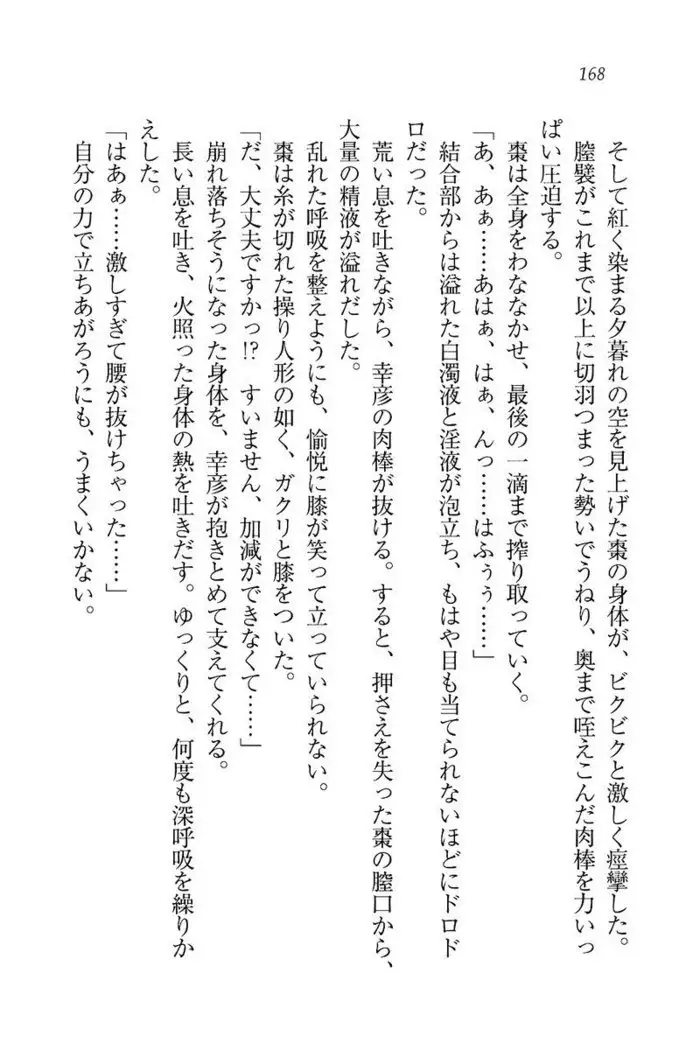 168
そして紅く染まる夕暮れの空を見上げた棗の身体が、ビクビクと激しく痙攣した。
膣襞がこれまで以上に切羽つまった勢いでうねり、奥まで咥えこんだ肉棒を力いっ
ぱい圧迫する。
棗は全身をわななかせ、最後の一滴まで搾り取っていく。
「あ、あぁ……あはぁ、はぁ、んっ……はふぅぅ……」
結合部からは溢れた白濁液と淫液が泡立ち、もはや目も当てられないほどにドロド
ロだった。
荒い息を吐きながら、幸彦の肉棒が抜ける。すると、押さえを失った棗の膣口から、
大量の精液が溢れだした。
乱れた呼吸を整えようにも、愉悦に膝が笑って立っていられない。
棗は糸が切れた操り人形の如く、ガクリと膝をついた。
「だ、大丈夫ですかっ!?　すいません、加減ができなくて……」
崩れ落ちそうになった身体を、幸彦が抱きとめて支えてくれる。
長い息を吐き、火照った身体の熱を吐きだす。ゆっくりと、何度も深呼吸を繰りか
えした。
「はあぁ……激しすぎて腰が抜けちゃった……」
自分の力で立ちあがろうにも、うまくいかない。